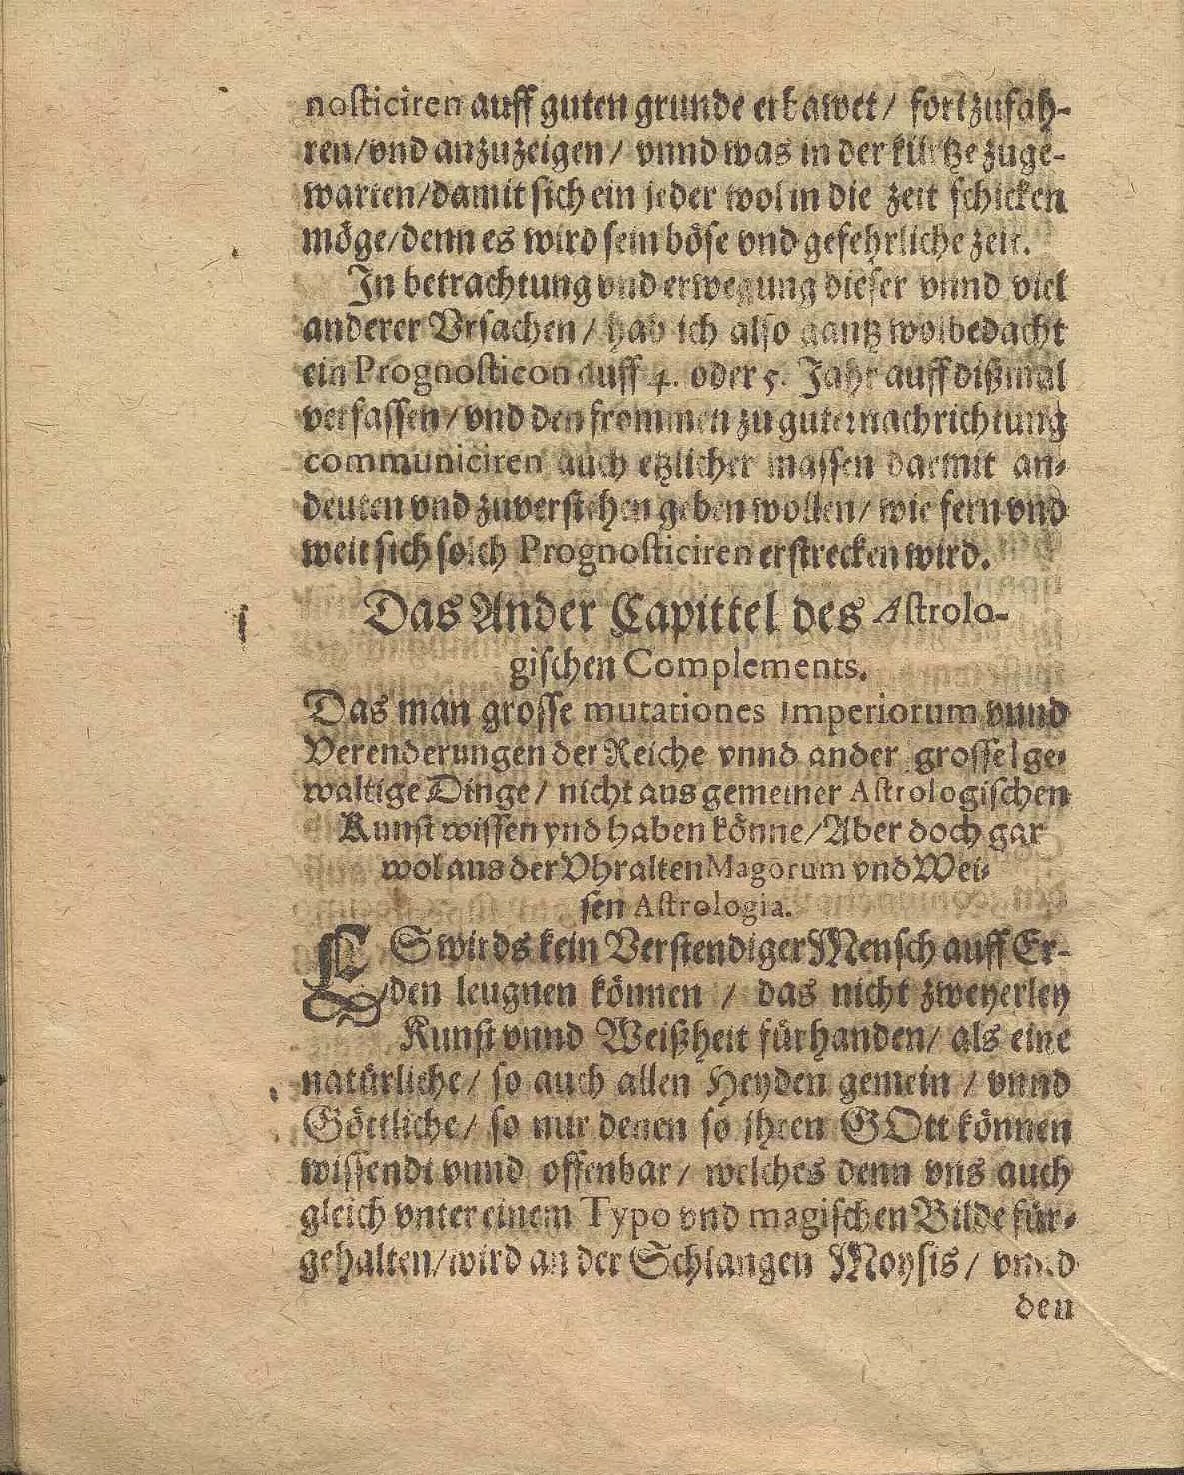 nosticiren auff guten grunde erbawet / fortzufah-
ren/vnd anzuzeigen / vnnd was in der kürtze zuge-
warten/damit sich ein jeder wol in die zeit schicken
möge/denn es wird sein böse vnd gefehrliche zeit.
In betrachtung vnd erwegung dieser vnnd viel
anderer Vrsachen / hab ich also gantz wolbedacht
ein Prognosticon auff 4. oder 5. Jahr auff dißmal
verfassen / vnd den frommen zu guter nachrichtung
communiciren auch etzlicher massen darmit an-
deuten vnd zuverstehen geben wollen / wie fern vnd
weit sich solch Prognosticiren erstrecken wird.
Das Ander Capittel des Astrolo-
gischen Complements.
Das man grosse mutationes Imperiorum vnnd
Verenderungen der Reiche vnnd ander grosse ge-
waltige Dinge / nicht aus gemeiner Astrologischen
Kunst wissen vnd haben könne/Aber doch gar
wol aus der Vhralten Magorum vnd Wei-
sen Astrologia.
ES wirds kein Verstendiger Mensch auff Er-
den leugnen können / das nicht zweyerley
Kunst vnnd Weißheit fürhanden/ als eine
natürliche/ so auch allen Heyden gemein / vnnd
Göttliche/ so nur denen so jhren GOtt können
wissendt vnnd offenbar / welches denn vns auch
gleich vnter einem Typo vnd magischen Bilde für-
gehalten/wird an der Schlangen Moysis / vnnd
den